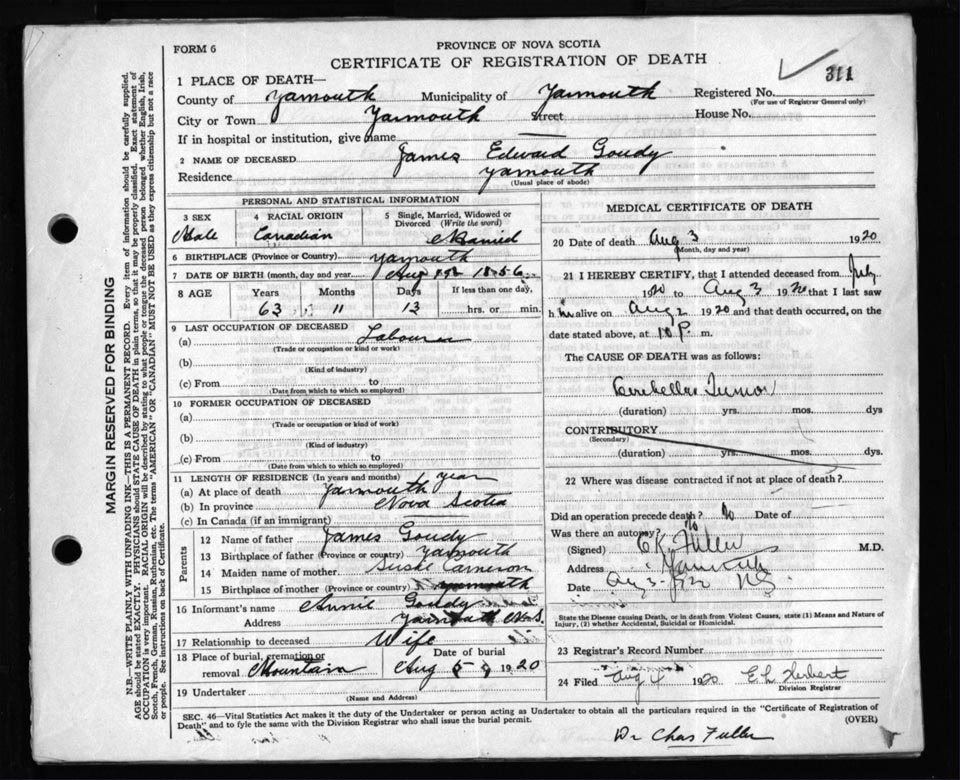 FORM 6
PROVINCE OF NOVA SCOTIA
CERTIFICATE OF REGISTRATION OF DEATH
311
1 PLACE OF DEATH—
County of Yarmouth Municipality of Yarmouth Registered No.
(For use of Registrar General only)
City or Town Yarmouth Street House No.
If in hospital or institution, give name
2 NAME OF DECEASED James Edward Goudy
Residence Yarmouth
(Usual place of abode)
PERSONAL AND STATISTICAL INFORMATION
3 SEX
Male
4 RACIAL ORIGIN
Canadian
5 Single, Married, Widowed or Divorced (Write the word)
Married
6 BIRTHPLACE (Province or Country) Yarmouth
7 DATE OF BIRTH (month, day and year) Aug 1856
8 AGE Years Months Days If less than one day,
63 11 13 hrs. or min.
9 LAST OCCUPATION OF DECEASED
(a) Labourer
(Trade or occupation or kind or work)
(b)
(Kind of industry)
(c) From to
(Date from which to which so employed)
10 FORMER OCCUPATION OF DECEASED
(a)
(Trade or occupation or kind of work)
(b)
(Kind of industry)
(c) From to
(Date from which to which so employed)
11 LENGTH OF RESIDENCE (In years and months)
(a) At place of death Yarmouth year
(b) In province Nova Scotia
(c) In Canada (if an immigrant)
Parents
12 Name of father James Goudy
13 Birthplace of father (Province or country) Yarmouth
14 Maiden name of mother Cameron
15 Birthplace of mother (Province or country) Yarmouth
16 Informant's name Annie Goudy
Address Yarmouth N.S.
17 Relationship to deceased Wife
18 Place of burial, cremation or removal Mountain
Date of burial Aug 5 1920
19 Undertaker
(Name and Address)
MEDICAL CERTIFICATE OF DEATH
20 Date of death Aug 3 1920
(Month, day and year)
21 I HEREBY CERTIFY, that I attended deceased from July
1920 to Aug 3 1920 that I last saw
him alive on Aug 2 1920 and that death occurred, on
date stated above, at 10 P. m.
The CAUSE OF DEATH was as follows:
Cerebellar Tumor
(duration) yrs. mos. dys
CONTRIBUTORY
(Secondary)
(duration) yrs. mos. dys.
22 Where was disease contracted if not at place of death?
Did an operation precede death? No Date of
Was there an autopsy? No
(Signed) C.K. Fuller M.D.
Address Yarmouth
Date Aug 3 N.S.
State the Disease causing Death, or in death from Violent Causes, state (1) Means and Nature of Injury, (2) whether Accidental, Suicidal or Homicidal.
23 Registrar's Record Number
24 Filed Aug 4 1920 E L Herbert
Division Registrar
SEC. 46—Vital Statistics Act makes it the duty of the Undertaker or person acting as Undertaker to obtain all the particulars required in the "Certificate of Registration of
Death" and to fyle the same with the Division Registrar who shall issue the burial permit.
(OVER)
Dr Chas Fuller
MARGIN RESERVED FOR BINDING
N.B.—WRITE PLAINLY WITH UNFADING INK—THIS IS A PERMANENT RECORD. Every item of information should be carefully supplied.
AGE should be stated EXACTLY. PHYSICIANS should STATE CAUSE OF DEATH in plain terms, so that it may be properly classified. Exact statement of
OCCUPATION is very important. RACIAL ORIGIN will be described by stating to what people or tongue the deceased person belonged whether English, Irish,
Scotch, French, German, Russian, Ruthenian, etc. The terms "AMERICAN" or "CANADIAN" MUST NOT BE USED as they express citizenship but not a race
or people. See instructions on back of Certificate.